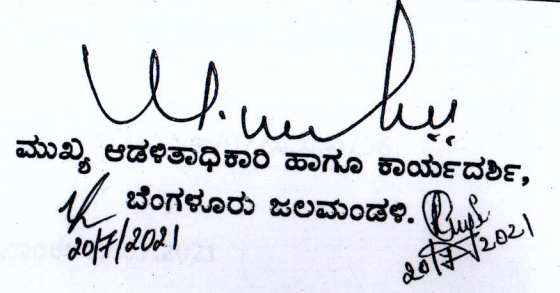 ಮುಖ್ಯ ಆಡಳಿತಾಧಿಕಾರಿ ಹಾಗೂ ಕಾರ್ಯದರ್ಶಿ,
ಬೆಂಗಳೂರು ಜಲಮಂಡಳಿ.
20/7/2021 20/7/2021